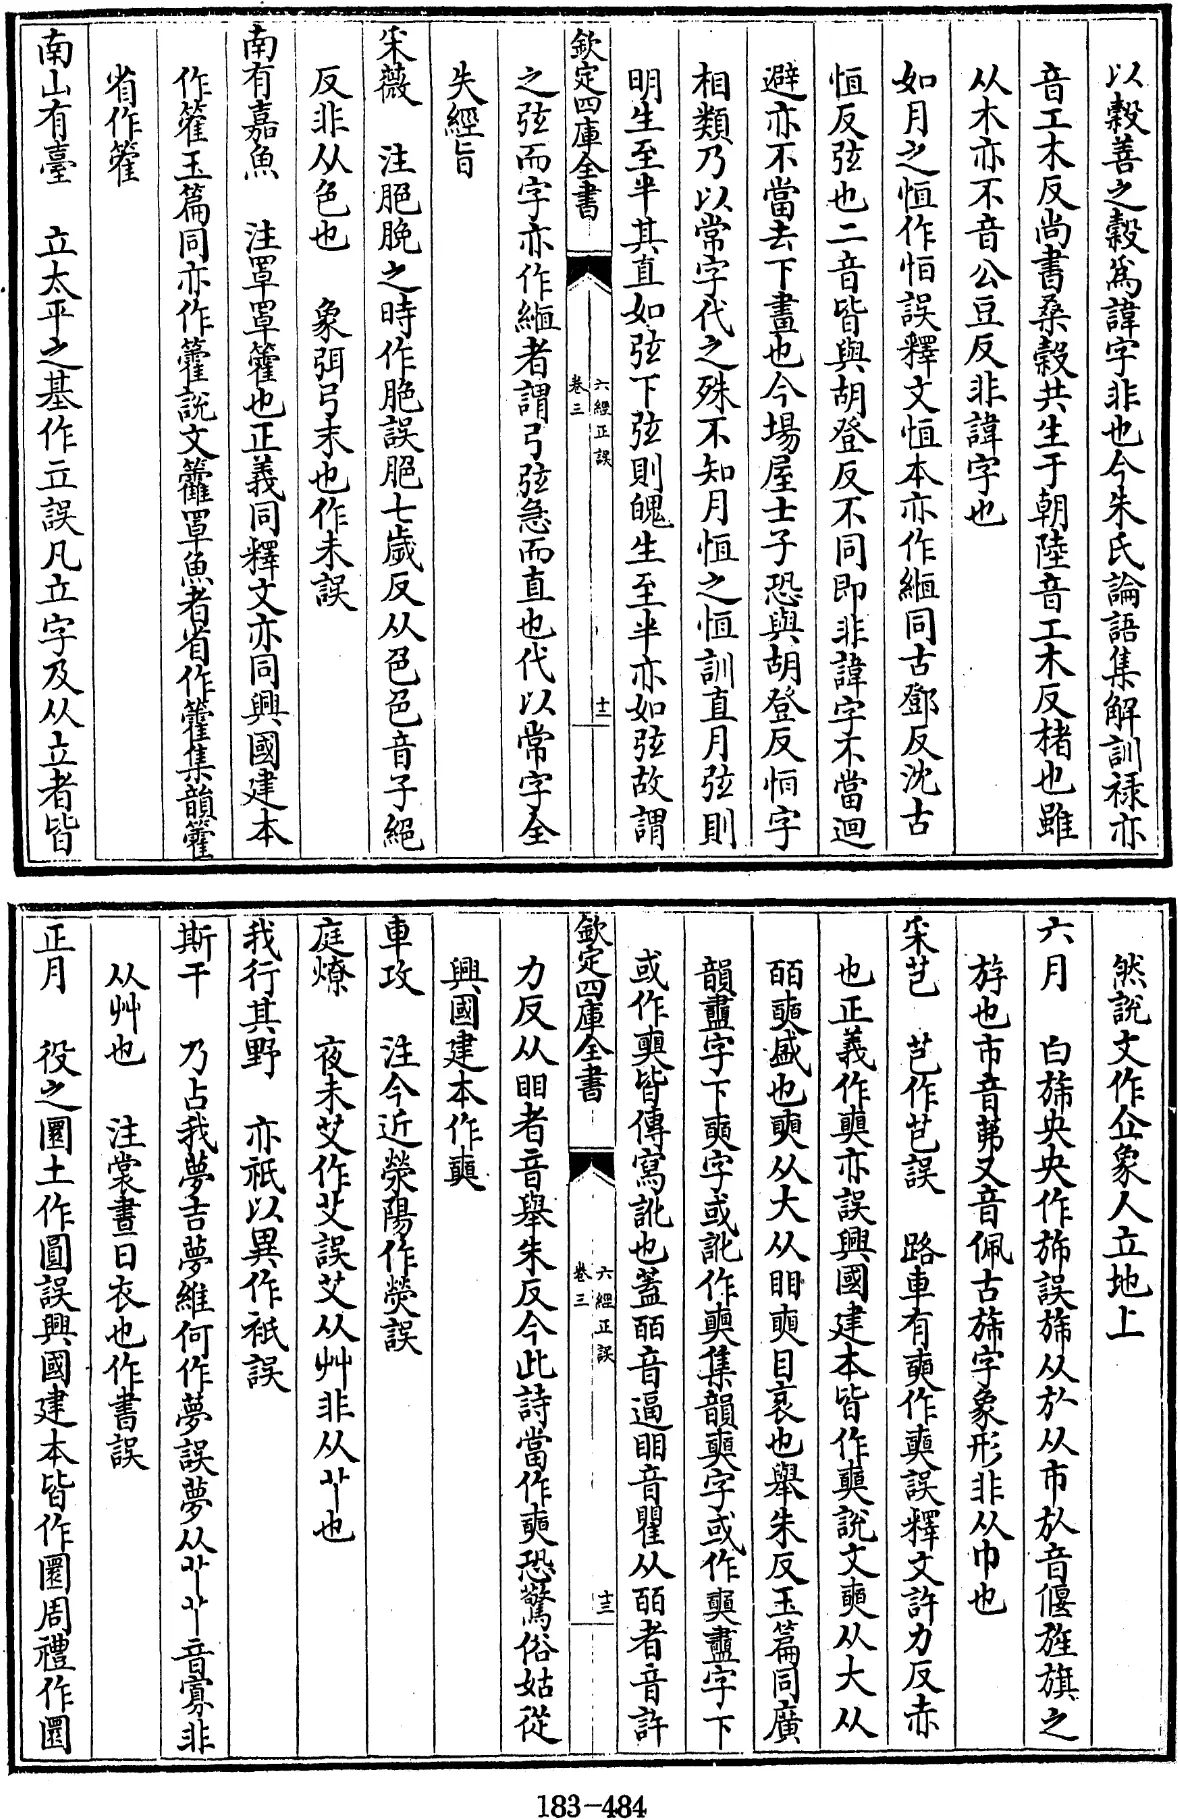 以穀善之穀為諱字非也今朱氏論語集解訓祿亦
音工木反尚書桑穀共生于朝陸音工木反楮也雖
从木亦不音公豆反非諱字也
如月之恒作恒誤釋文恒本亦作緪同古鄧反沈古
恒反弦也二音皆與胡登反不同即非諱字不當迴
避亦不當去下畫也今場屋士子恐與胡登反恒字
相類乃以常字代之殊不知月恒之恒訓直月弦則
明生至半其直如弦下弦則魄生至半亦如弦故謂
欽定四庫全書
六經正誤
卷三
十二
之弦而字亦作緪者謂弓弦急而直也代以常字全
失經旨
采薇 注脃脕之時作脆誤脃七歲反从㔾色音子絕
反非从色也 象弭弓末也作未誤
南有嘉魚 注罩罩籗也正義同釋文亦同興國建本
作篧玉篇同亦作籗說文籱罩魚者省作籗集韻籗
省作篧
南山有臺 立太平之基作立誤凡立字及从立者皆
然說文作立象人立地上
六月 白旆央央作斾誤旆从㫃从巿㫃音偃旌旗之
斿也巿音茀又音佩古旆字象形非从巾也
采芑 芑作芑誤 路車有奭作奭誤釋文許力反赤
也正義作奭亦誤興國建本皆作奭說文奭从大从
皕奭盛也奭从大从䀠奭目衺也舉朱反玉篇同廣
韻衋字下奭字或訛作奭集韻奭字或作奭衋字下
或作奭皆傳寫訛也蓋皕音逼䀠音瞿从皕者音許
欽定四庫全書
六經正誤
卷三
十三
力反从䀠者音舉朱反今此詩當作奭恐驚俗姑從
興國建本作奭
車攻 注今近滎陽作熒誤
庭燎 夜未艾作艾誤艾从艸非从丱也
我行其野 亦祇以異作祗誤
斯干 乃占我夢吉夢維何作夢誤夢从𦫳𦫳音寡非
从艸也 注裳晝日衣也作書誤
正月 役之圜土作圓誤興國建本皆作圜周禮作圜
183-484